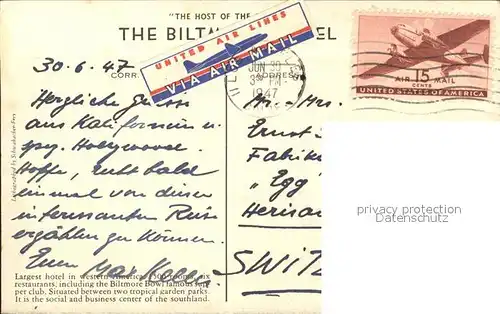 "THE HOST OF THE
THE BILTM EL
UNITED AIR LINES
VIA AIR MAIL
30.6.47
CORR
ADDRESS
JUN 30
3 PM
1947
AIR 15 MAIL
CENTS
UNITED STATES OF AMERICA
Herzliche Grüsse
aus Kalifornien u.
spez. Hollywood.
Hoffe, recht bald
einmal von dieser
interessanten Reise
erzählen zu können.
Euer Max
Mr. - Mrs.
Ernst
Fabrik
"Egg"
Herisau
SWITZ
privacy protection
Largest hotel in western America, 1500 rooms, six
restaurants; including the Biltmore Bowl famous sup-
per club. Situated between two tropical garden parks.
It is the social and business center of the southland.